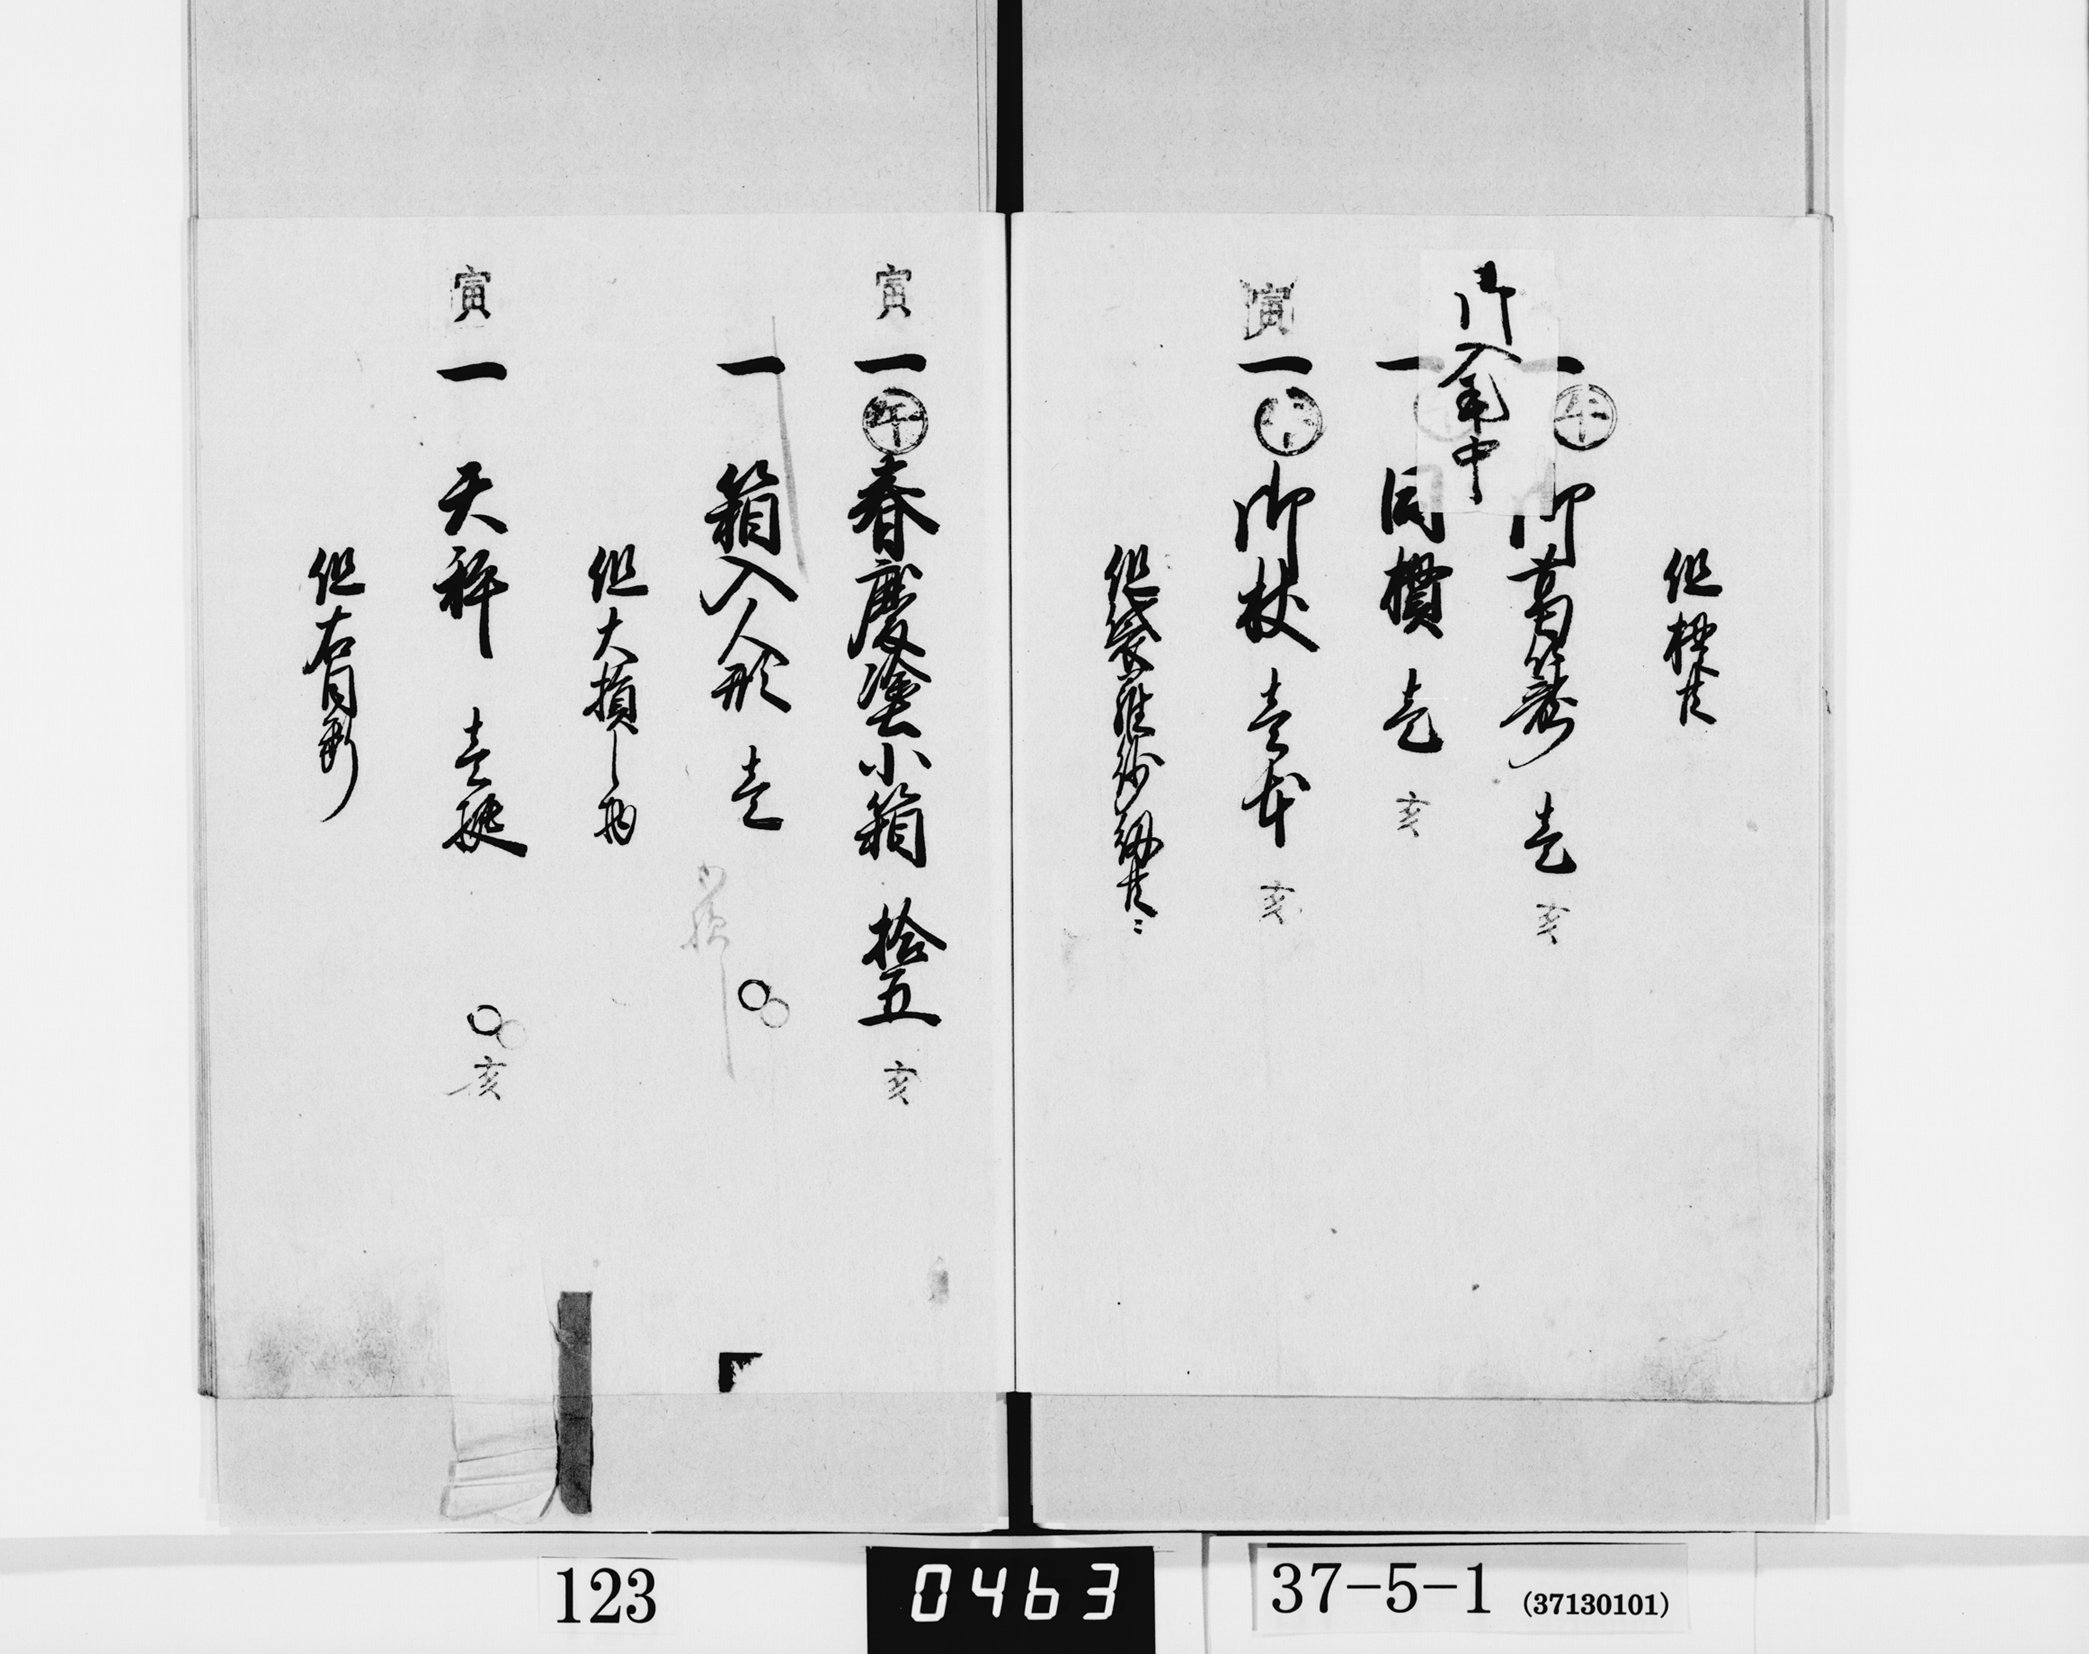 但櫻共
一 午 御葛籠 壱 亥
御入気中
一 同櫃 壱 亥
寅 一 御杖 壱本 亥
但袋羅紗紐共ニ
寅 一 午 春慶塗小箱 拾五 亥
一 箱入人形 壱
但大損し物
寅 一 天秤 壱挺 亥
但右同断
123
0463
37-5-1 (37130101)